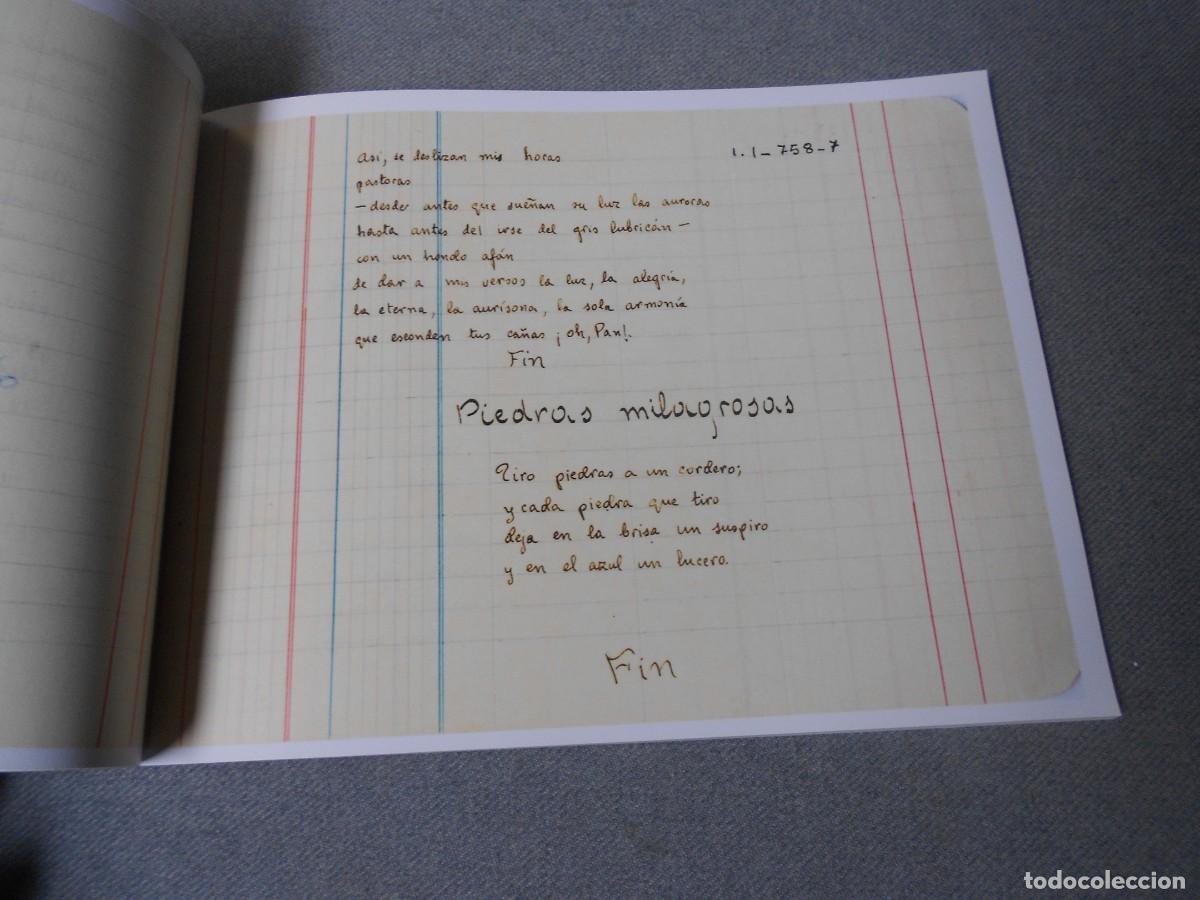 1.1-758-7
Así, se deslizan mis horas
pastoras
—desde antes que sueñan su luz las auroras
hasta antes del irse del gris lubricán—
con un hondo afán
de dar a mis versos la luz, la alegría,
la eterna, la aurísona, la sola armonía
que esconden tus cañas ¡oh, Pan!.
Fin
Piedras milagrosas
Tiro piedras a un cordero;
y cada piedra que tiro
deja en la brisa un suspiro
y en el azul un lucero.
Fin
todocoleccion